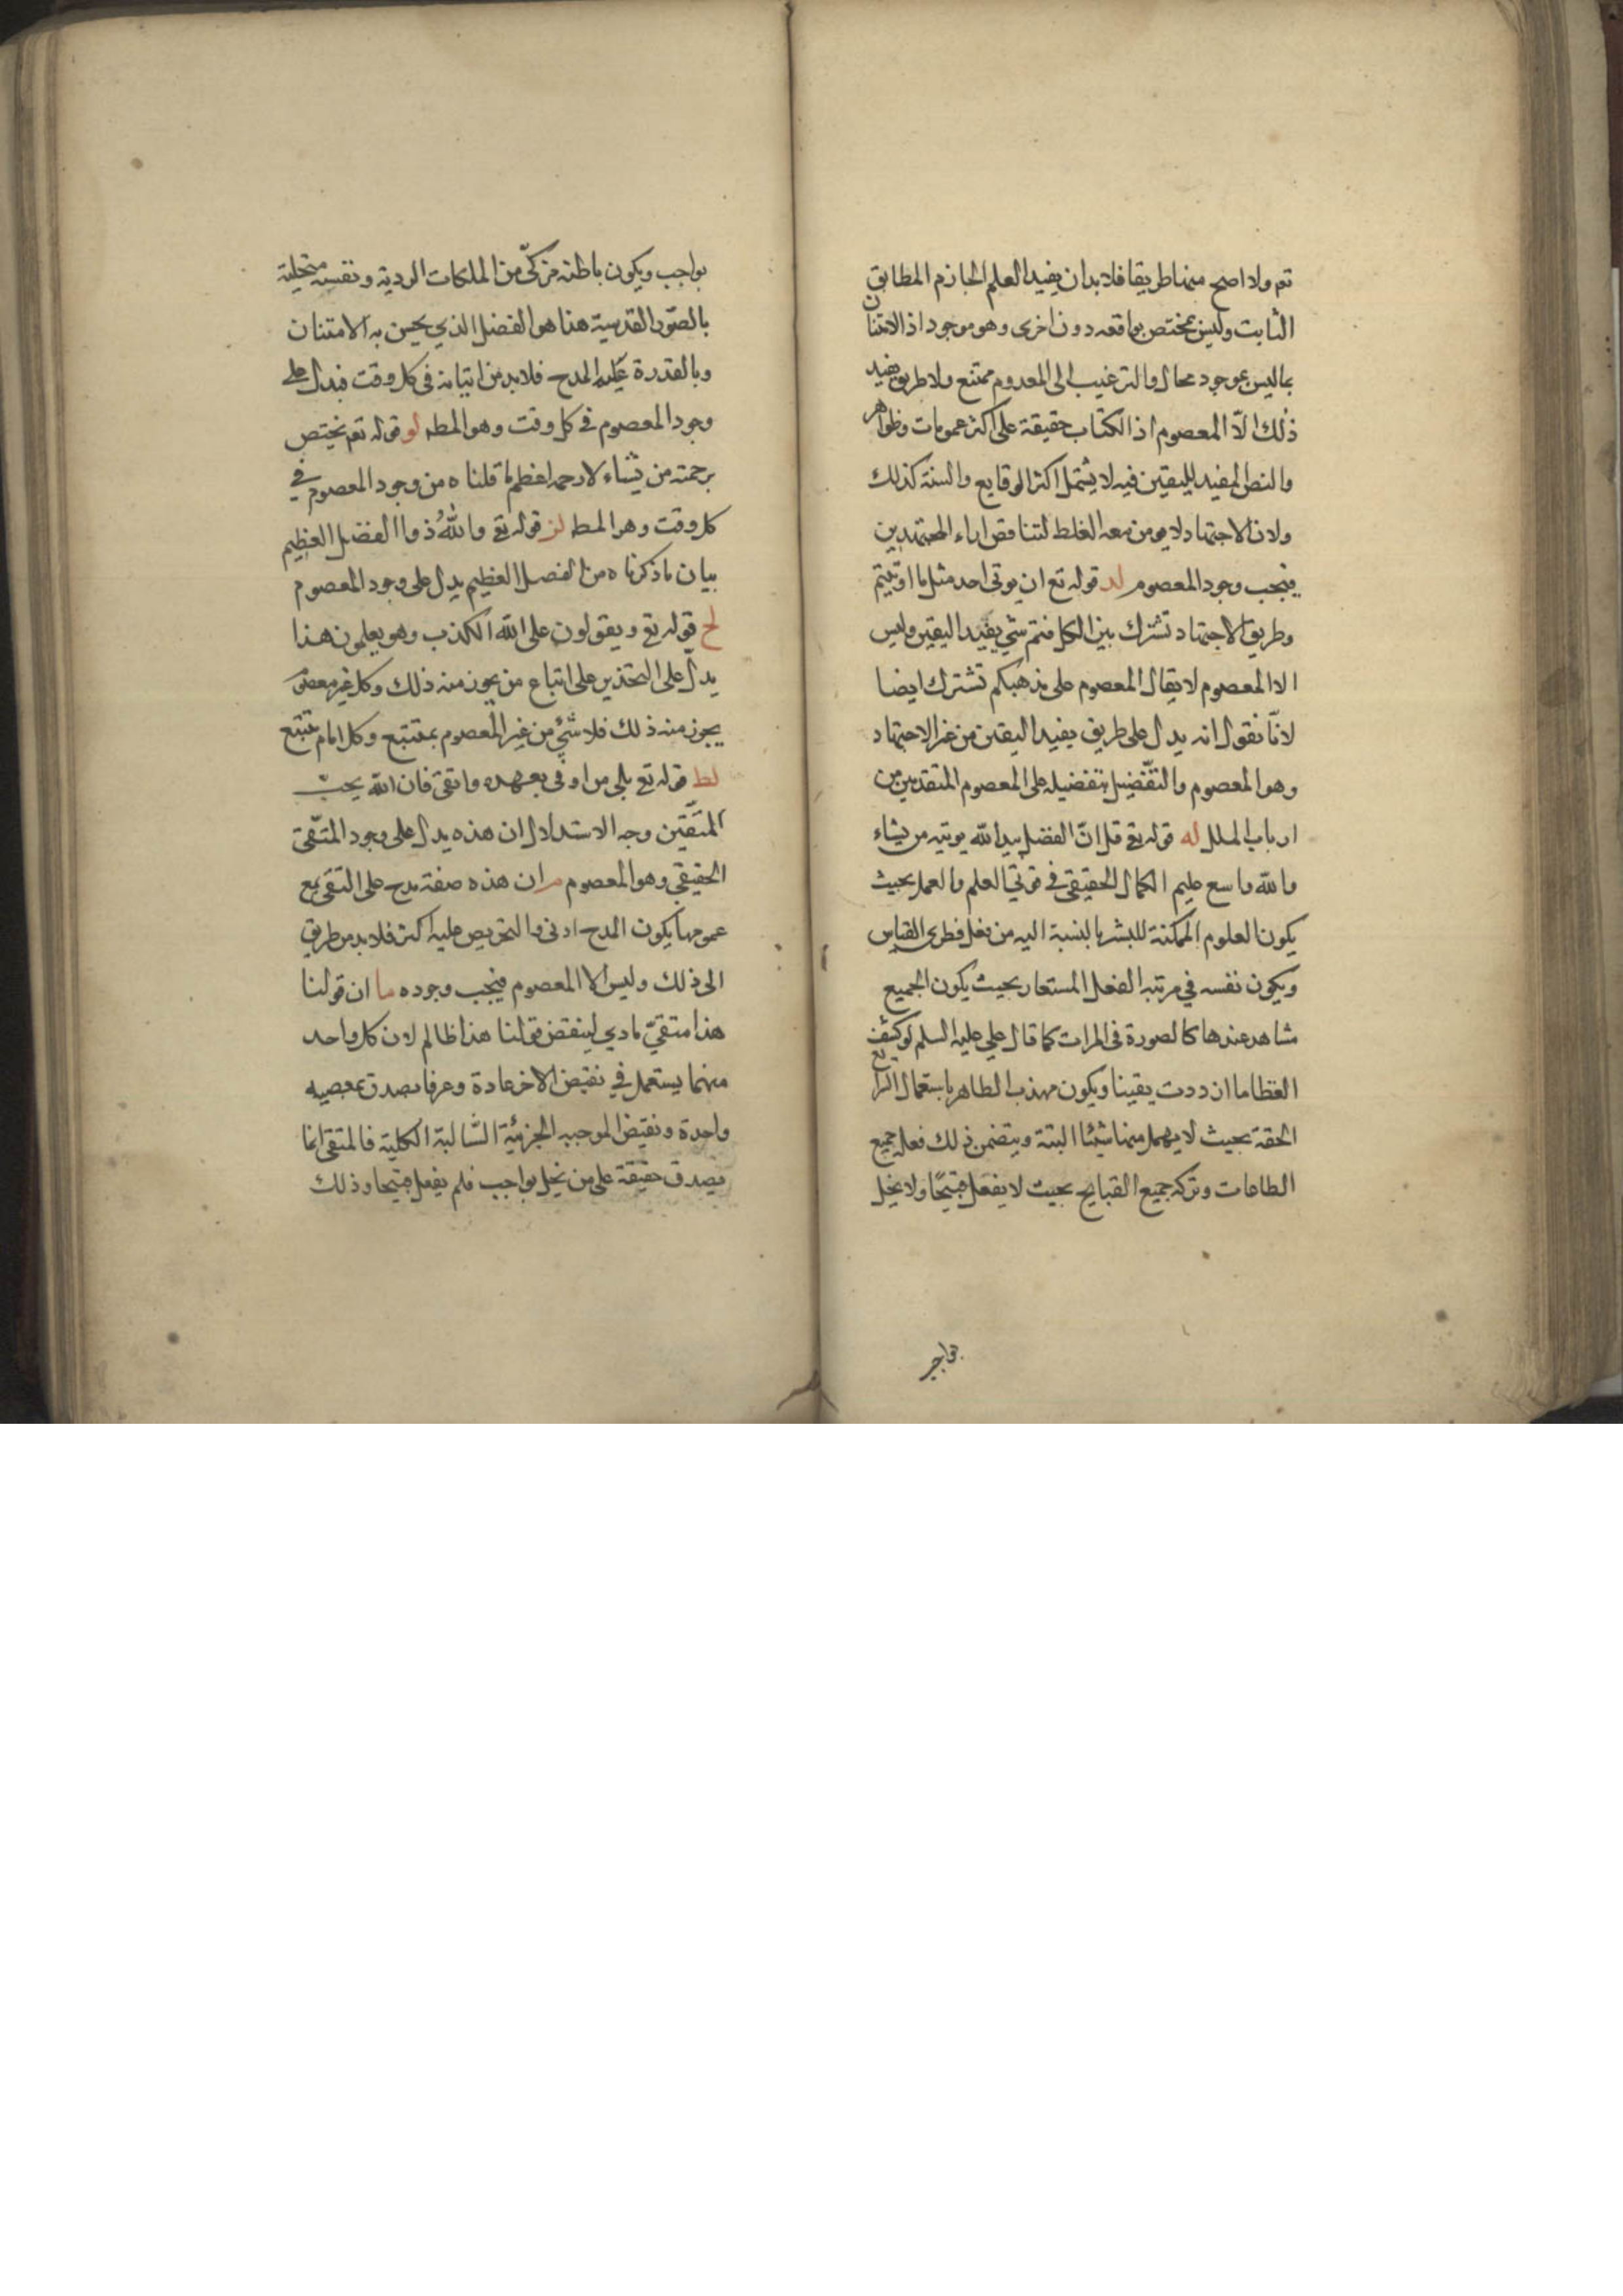 تعم ولا اصح منها طريقا فلا بد ان يفيد العلم الجازم المطابق
الثابت وليس بمختص بواقعه دون اخرى وهو موجود اذ الامتنان
بما ليس بموجود محال والترغيب الى المعدوم ممتنع ولا طريق يفيد
ذلك الّا المعصوم اذ الكتاب حقيقة على اكثر عمومات وظواهر
والنص المفيد لليقين فيه لا يشتمل اكثر الوقايع والسنة كذلك
ولان الاجتهاد لا يومن معه الغلط لتناقض اراء المجتهدين
فيجب وجود المعصوم لد قوله تع ان يوتى احد مثل ما اوتيتم
وطريق الاجتهاد تشترك بين الكل فثم شي يفيد اليقين وليس
الا المعصوم لا يقال المعصوم على مذهبكم تشترك ايضا
لانّا نقول انه يدل على طريق يفيد اليقين من غير الاجتهاد
وهو المعصوم والتفضيل بتفضيله على المعصوم المتقدمين من
ارباب الملل له قوله تع قل انّ الفضل بيد الله يوتيه من يشاء
والله واسع عليم الكمال الحقيقي في قوتي العلم والعمل بحيث
يكون العلوم الممكنة للبشر بالنسبة اليه من فطرى القياس
ويكون نفسه في مرتبه العقل المستعار بحيث يكون الجميع
مشاهد عندها كالصورة في المرات كما قال علي عليه السلم لو كشف
الغطا ما ازددت يقينا ويكون مهذب الظاهر باستعمال الشرائع
الحقة بحيث لا يهمل منها شيئا البتة ويتضمن ذلك فعل جميع
الطاعات وتركه جميع القبايح بحيث لا يفعل قبيحًا ولا يخل
بواجب
بواجب ويكون باطنه مزكّى من الملكات الردية ونفسه متحلية
بالصور القدسية هذا هو الفضل الذي يحسن به الامتنان
وبالقدرة عليه المدح فلا بد من اتيانه في كل وقت فيدل على
وجود المعصوم في كل وقت وهو المط لو قوله تعم يختص
برحمته من يشاء لا رحمه اعظم مما قلناه من وجود المعصوم في
كل وقت وهو المط لز قوله تع والله ذوا الفضل العظيم
بيان ما ذكرناه من الفضل العظيم يدل على وجود المعصوم
لح قوله تع ويقولون على الله الكذب وهو يعلمون هذا
يدل على التحذير على اتباع من يجوز منه ذلك وكل غير معصوم
يجوز منه ذلك فلا شئ من غير المعصوم بمتبع وكل امام متبع
لط قوله تع بلى من اوفى بعهده واتقى فان الله يحب
المتقين وجه الاستدلال ان هذه يدل على وجود المتّقى
الحقيقي وهو المعصوم م ان هذه صفة مدح على التقى مع
عمومها يكون المدح ادنى والتحريص عليه اكثر فلا بد من طريق
الى ذلك وليس الا المعصوم فيجب وجوده ما ان قولنا
هذا متقيّ لينقض قولنا هذا ظالم لان كل واحد
منهما يستعمل في نقيض الاخر عادة وعرفا يصدق بمعصيه
واحدة ونقيض الموجبه الجزئية السّالبة الكلية فالمتقى انما
يصدق حقيقة على من يخل بواجب فلم يفعل قبيحا وذلك